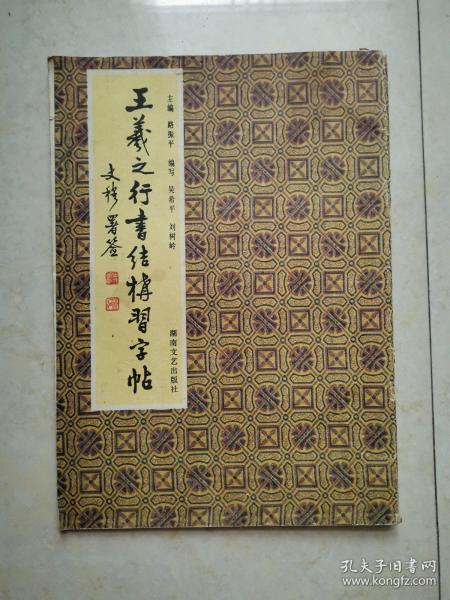 王羲之行書结構習字帖
主编 路振平 编写 吴希平 刘树岭
署签
湖南文艺出版社
孔夫子旧书网
www.kongfz.com